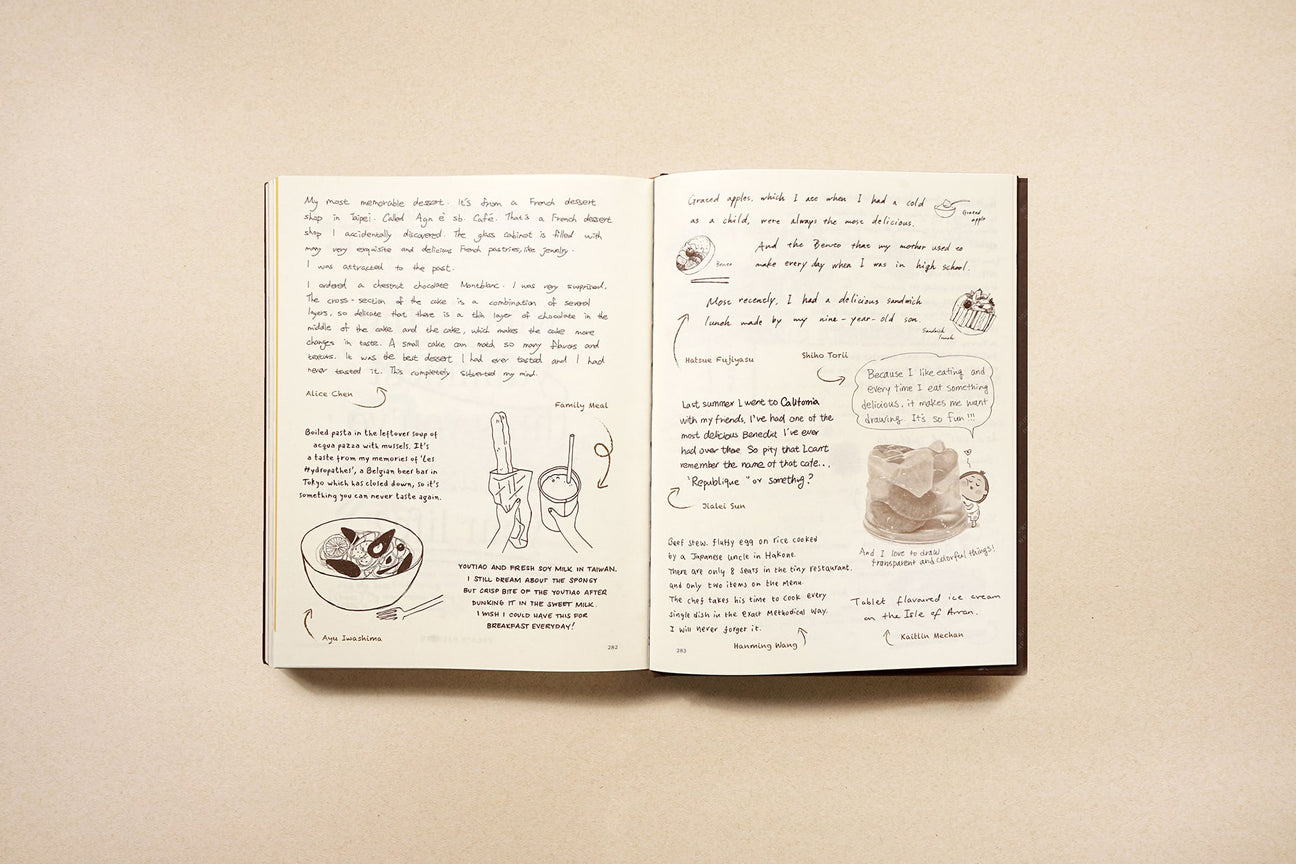 My most memorable dessert. It's from a French dessert
shop in Taipei. Called Agn è sb. Café. That's a French dessert
shop I accidentally discovered. The glass cabinet is filled with
many very exquisite and delicious French pastries, like jewelry.
I was attracted to the past.
I ordered a chestnut chocolate Montblanc. I was very surprised.
The cross-section of the cake is a combination of several
layers, so delicate that there is a thin layer of chocolate in the
middle of the cake and the cake, which makes the cake more
changes in taste. A small cake can so many flavors and
texturs. It was the best dessert I had ever tasted and I had
never tasted it. This completely my mind.
Alice Chen
Boiled pasta in the leftover soup of
acqua pazza with mussels. It's
a taste from my memories of 'Les
Hydropathes', a Belgian beer bar in
Tokyo which has closed down, so it's
something you can never taste again.
Ayu Iwashima
Family Meal
YOUTIAO AND FRESH SOY MILK IN TAIWAN.
I STILL DREAM ABOUT THE SPONGY
BUT CRISP BITE OF THE YOUTIAO AFTER
DUNKING IT IN THE SWEET MILK.
I WISH I COULD HAVE THIS FOR
BREAKFAST EVERYDAY!
282
Grated apples, which I ate when I had a cold
as a child, were always the most delicious.
Grated
apple
And the Bento that my mother used to
make every day when I was in high school.
Bento
Most recently, I had a delicious sandwich
lunch made by my nine-year-old son.
Sandwich
lunch
Hatsue Fujiyasu
Shiho Torii
Because I like eating and
every time I eat something
delicious, it makes me want
drawing. It's so fun!!!
And I love to draw
transparent and colorful things!
Last summer I went to California
with my friends, I've had one of the
most delicious Benedict I've ever
had over there. So pity that I can't
remember the name of that cafe...
"Republique" or something?
Jialei Sun
Beef stew, fluffy egg on rice cooked
by a Japanese uncle in Hakone.
There are only 8 seats in the tiny restaurant,
and only two items on the menu.
The chef takes his time to cook every
single dish in the exact methodical way.
I will never forget it.
Hanming Wang
Tablet flavoured ice cream
on the Isle of Arran.
Kaitlin Mechan
283